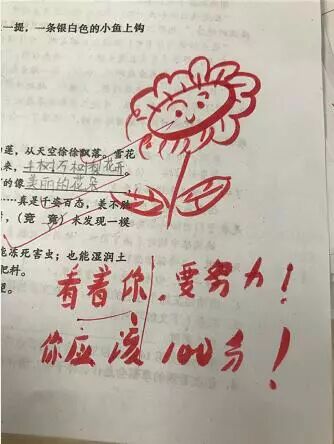 一提，一条银白色的小鱼上钩
莲，从天空徐徐飘落。雪花
来，千树万树梨花开。
的像美丽的花朵
……真是千姿百态，美不胜
，（竟 竟）未发现一模
能冻死害虫；也能湿润土
肥料。
看着你，要努力！
你应该100分！